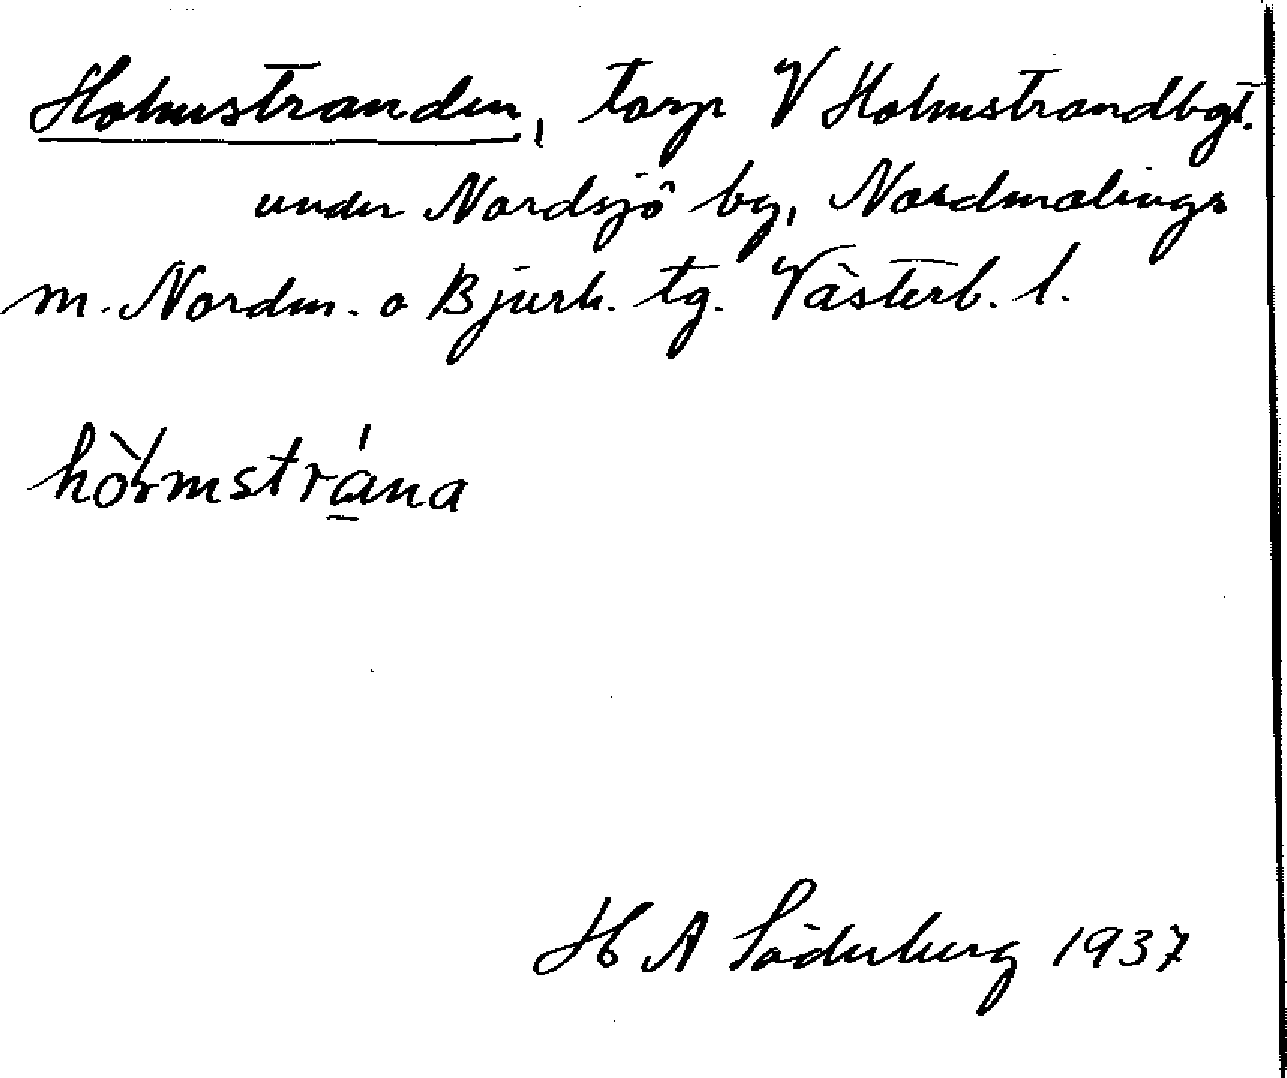 Holmstranden, torp V Holmstrandbgt.
under Nordsjö by, Nordmalings
m. Nordm. o Bjurh. tg. Västerb. l.
hòɫmstrána
H A Söderberg 1937